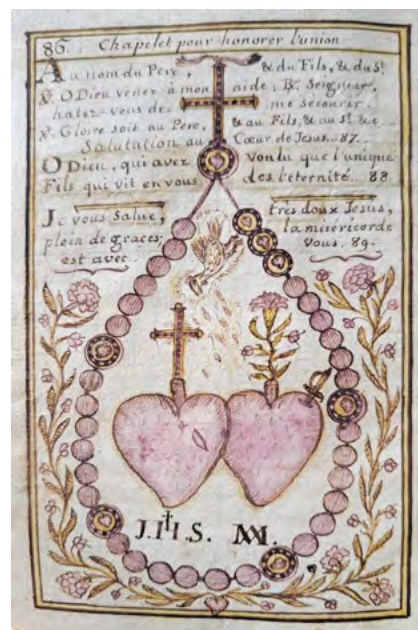 86. Chapelet pour honorer l'union
Au nom du Pere, & du Fils, & du St
℣. O Dieu venez à mon aide: ℟. Seigneur,
hatez-vous de me secourir.
℣. Gloire soit au Pere, & au Fils, & au St. &c
Salutation au Cœur de Jesus. 87.
O Dieu, qui avez voulu que l'unique
Fils qui vit en vous des l'eternité. 88
Je vous Salue, très doux Jesus,
plein de graces: la misericorde
est avec vous. 89.
J.IHS. M.